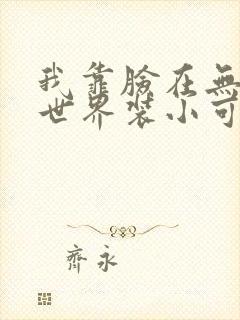 我靠臉在無
世界裝小可
齊永